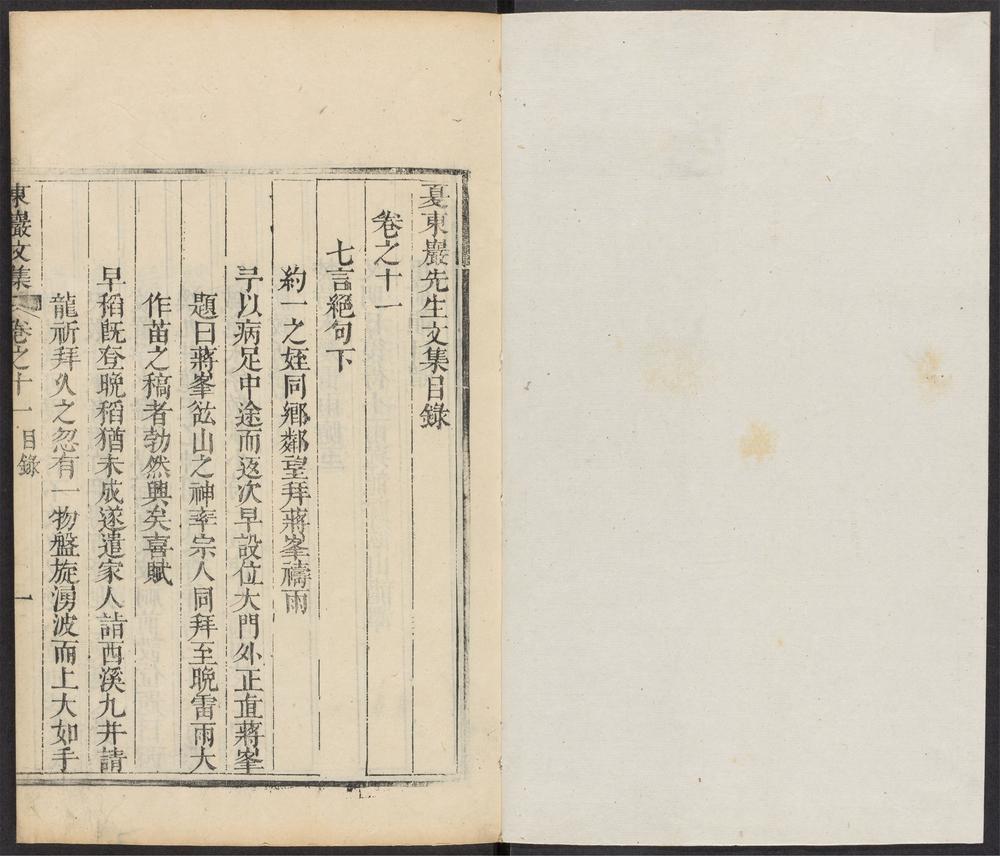 夏東巖先生文集目錄
卷之十一
七言絕句下
約一之姪同鄉鄰望拜蔣峯禱雨
予以病足中途而返次早設位大門外正直蔣峯
題曰蔣峯竑山之神率宗人同拜至晩雷雨大
作苗之稿者勃然興矣喜賦
早稻旣登晩稻猶未成遂遣家人詣西溪九井請
龍祈拜久之忽有一物盤旋湧波而上大如手
東巖文集 卷之十一 目錄 一